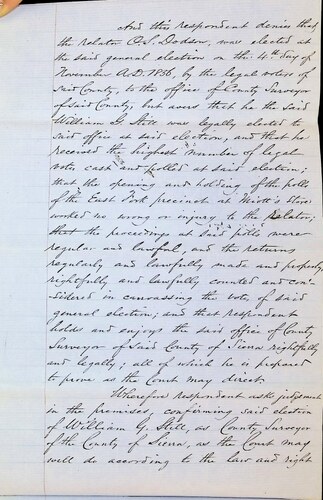 And this respondent denies that
the relator O. S. Dodson, was elected at
the said general election on the 4th day of
November A.D. 1856, by the legal voters of
said County, to the office of County Surveyor
of said County; but avers that he the said
William G. Still was legally elected to
said office at said election, and that he
received the highest number of legal
votes cast and polled at said election;
that the opening and holding of the polls
of the East Fork precinct at Miott's Store
worked no wrong or injury to the Relator;
that the proceedings at said polls were
regular and lawful, and the returns
regularly and lawfully made and properly
rightfully and lawfully counted and con-
sidered in canvassing the vote, of said
general election; and that respondent
holds and enjoys the said office of County
Surveyor of said County of Sierra rightfully
and legally; all of which he is prepared
to prove as the Court may direct.
Wherefore respondent asks judgment
in the premises, confirming said election
of William G. Still, as County Surveyor
of the County of Sierra, as the Court may
well do according to the law and right